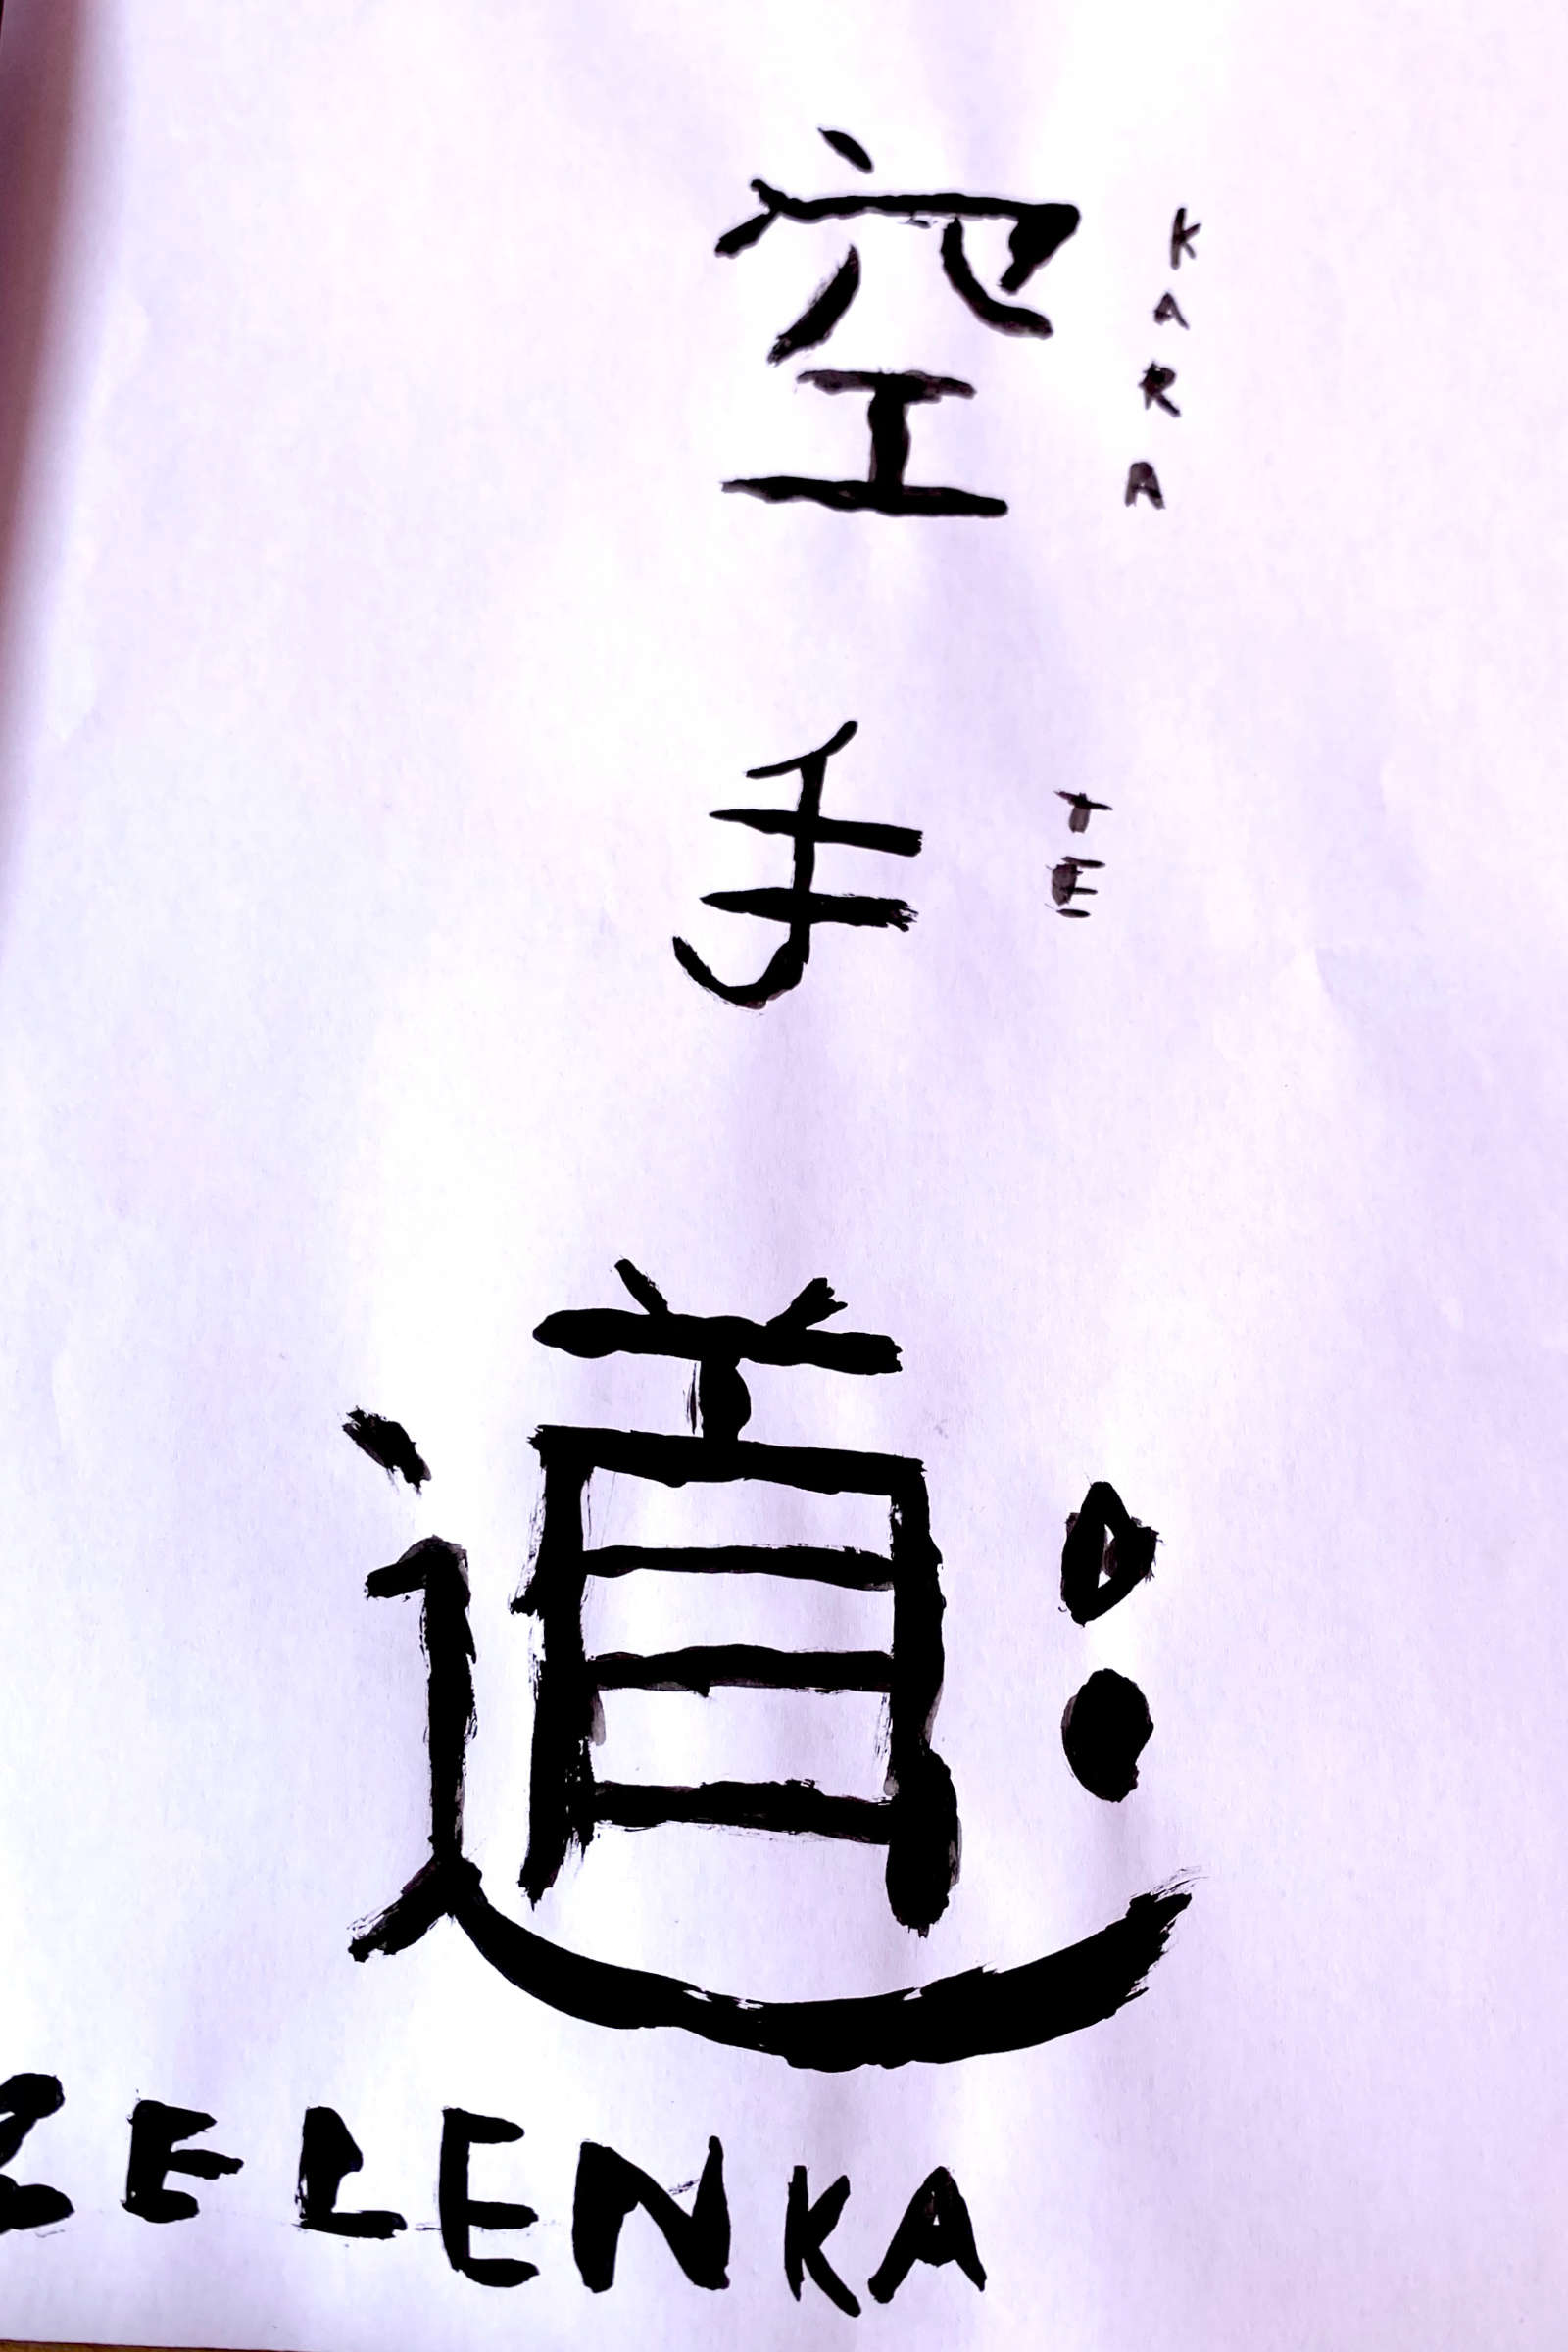 空 KARA
手 TE
道 DO
ZELENKA